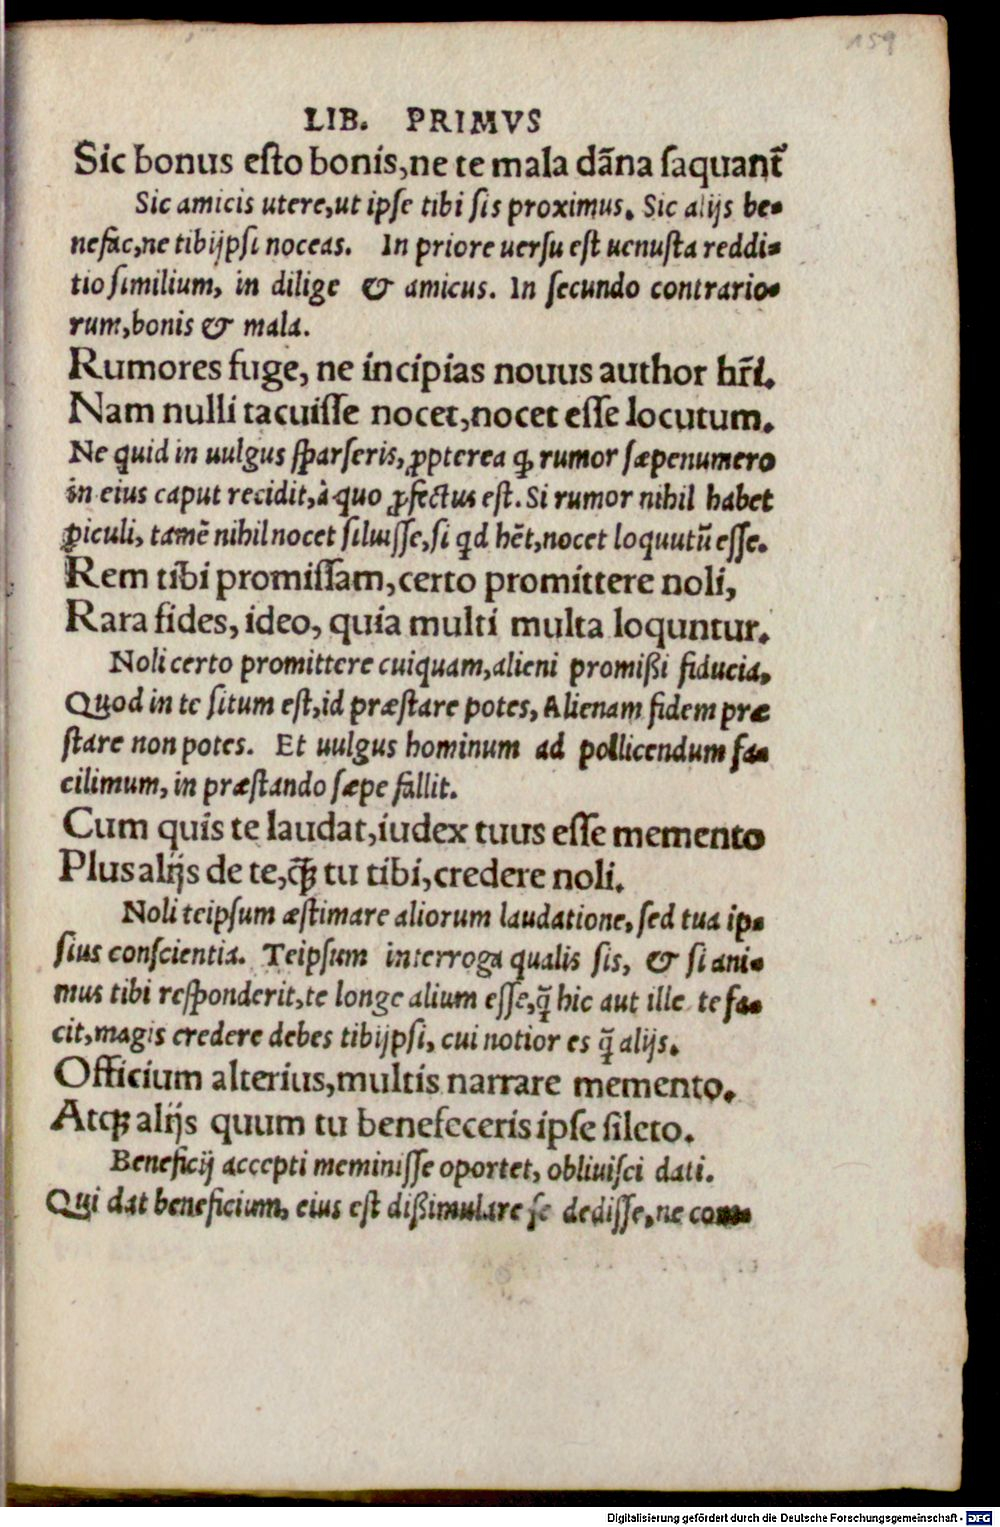 159
LIB. PRIMVS
Sic bonus esto bonis, ne te mala dāna saquant᷑
Sic amicis utere, ut ipse tibi sis proximus. Sic alijs be-
nefac, ne tibijpsi noceas. In priore uersu est uenusta reddi-
tio similium, in dilige & amicus. In secundo contrario-
rum, bonis & mala.
Rumores fuge, ne incipias nouus author hr̄i.
Nam nulli tacuisse nocet, nocet esse locutum.
Ne quid in uulgus sparseris, ꝓpterea ꝙ rumor sæpenumero
in eius caput recidit, à quo ꝓfectus est. Si rumor nihil habet
ꝑiculi, tamē nihil nocet siluisse, si qd hēt, nocet loquutū esse.
Rem tibi promissam, certo promittere noli,
Rara fides, ideo, quia multi multa loquntur.
Noli certo promittere cuiquam, alieni promißi fiducia,
Quod in te situm est, id præstare potes, Alienam fidem præ
stare non potes. Et uulgus hominum ad pollicendum fa-
cilimum, in præstando sæpe fallit.
Cum quis te laudat, iudex tuus esse memento
Plus alijs de te, q̄ꝫ tu tibi, credere noli.
Noli teipsum æstimare aliorum laudatione, sed tua ip-
sius conscientia. Teipsum interroga qualis sis, & si ani-
mus tibi responderit, te longe alium esse, q̄ hic aut ille te fa-
cit, magis credere debes tibijpsi, cui notior es q̄ alijs.
Officium alterius, multis narrare memento.
Atqꝫ alijs quum tu benefeceris ipse sileto.
Beneficij accepti meminisse oportet, obliuisci dati.
Qui dat beneficium, eius est dißimulare se dedisse, ne com-
Digitalisierung gefördert durch die Deutsche Forschungsgemeinschaft - DFG